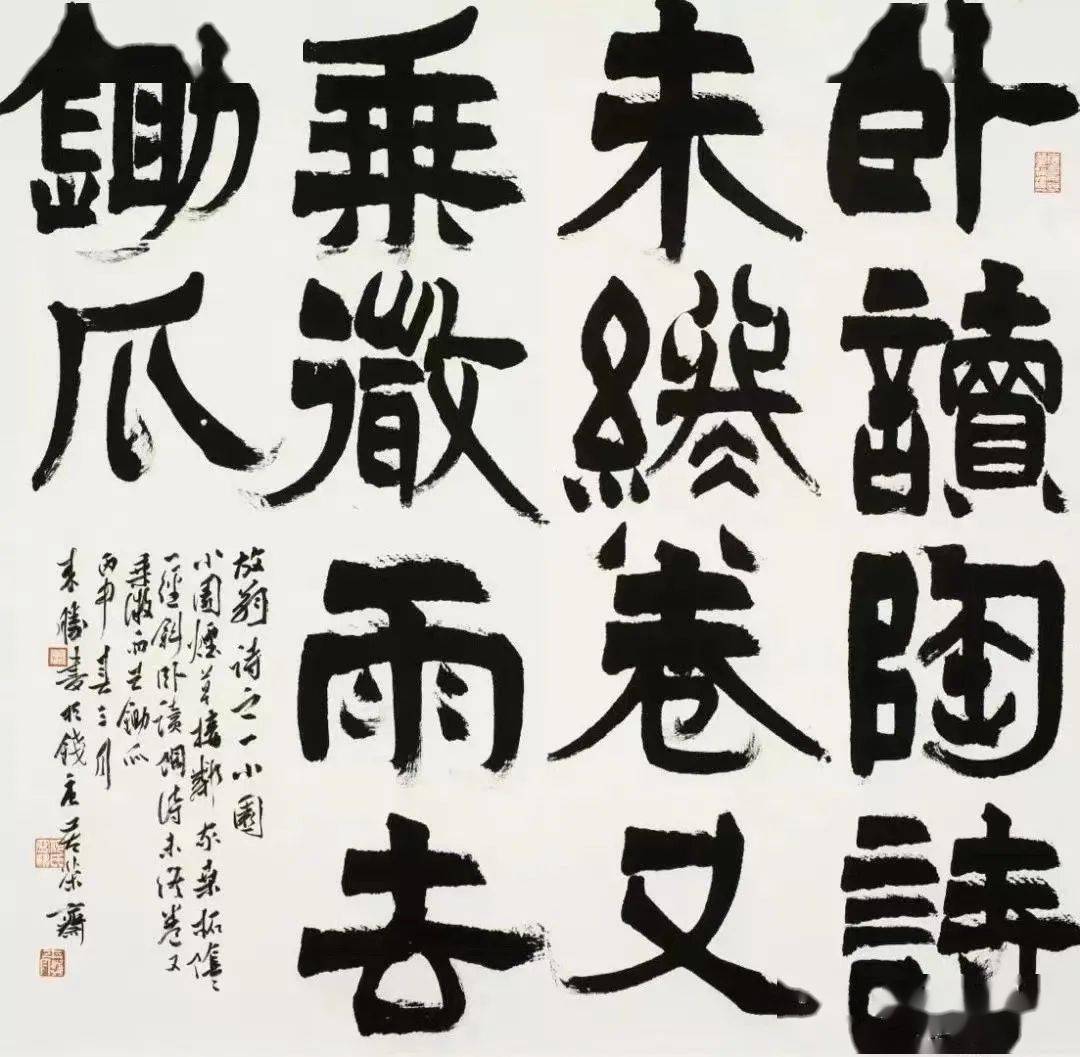 卧讀陶詩
未終卷又
乘微雨去
鋤瓜
放翁詩之一小園
小園煙草接鄰家桑柘陰陰
一徑斜卧讀陶詩未終卷又
乘微雨去鋤瓜
丙申春三月
来勝書於錢唐若齋